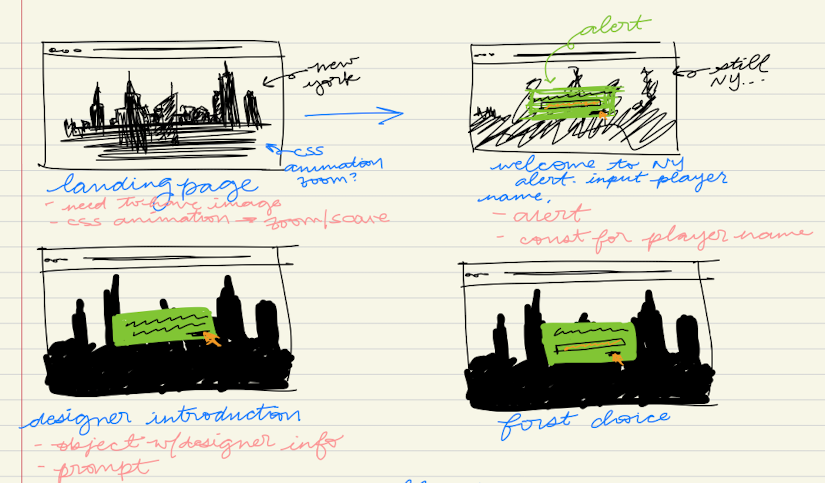 alert
new
york
still
NY...
css
animation
zoom?
landing page
- need to have image
- css animation → zoom/scale
welcome to NY
alert. input player
name.
- alert
- const for player name
designer introduction
- object w/designer info
- prompt
first choice